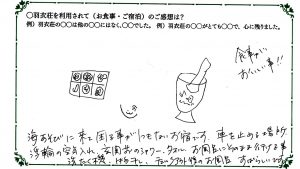 ○羽衣荘を利用されて（お食事・ご宿泊）のご感想は？
例）羽衣荘の○○は他の○○にはなく、○○でした。 例）羽衣荘の○○がとても○○で、心に残りました。
食事が
おいしい事!!
海あそびに来て困る事が1つもないお宿です。車を止める場所
浮輪の空気入れ、玄関前のシャワー、タオル、お風呂に
洗たく機、物干し、チェックアウト後のお風呂 すばらしいです